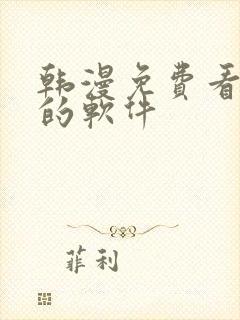 韩漫免費看
的軟件
菲利